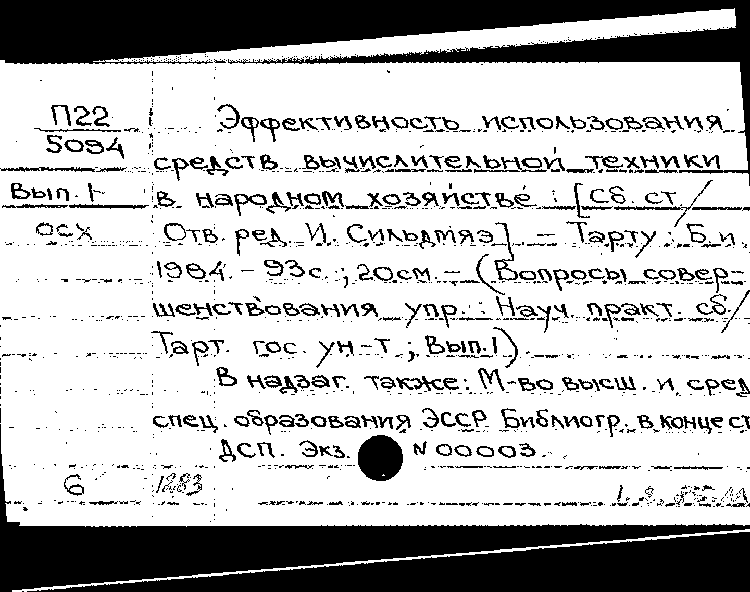 П22
5094
Вып. 1
осх
Эффективность использования
средств вычислительной техники
в народном хозяйстве : [Сб. ст./
Отв. ред. И. Сильдмяэ]. – Тарту : Б.и.,
1984. – 93с. ; 20см. – (Вопросы совер-
шенствования упр. : Науч. практ. сб./
Тарт. гос. ун-т ; Вып.1).
В надзаг. также: М-во высш. и сред.
спец. образования ЭССР Библиогр. в конце ст.
ДСП. Экз. N 00003.
6 1283